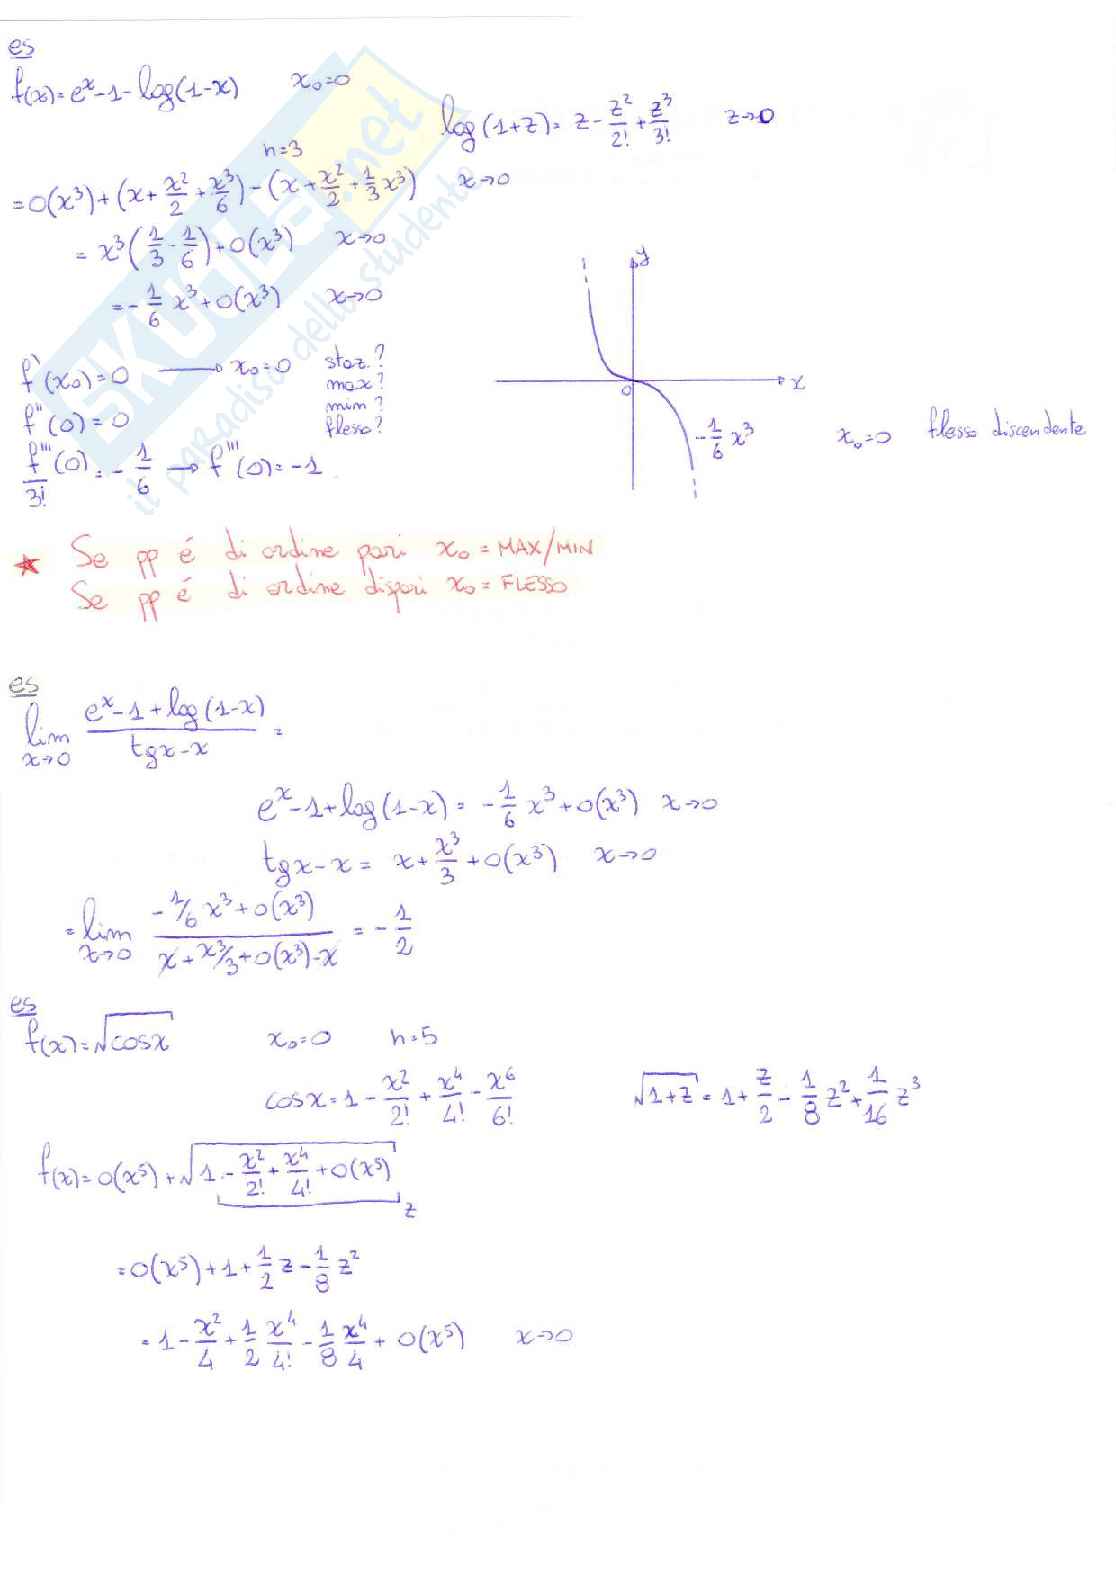 es
f(x)=e^x-1-log(1-x) x₀=0
log(1+z)= z - z²/2! + z³/3! z→0
n=3
=o(x³)+(x+x²/2+x³/6)-(x+x²/2+1/3x³) x→0
= x³(1/3-1/6)+o(x³) x→0
=-1/6 x³+o(x³) x→0
f'(x₀)=0 → x₀=0 staz.?
max?
f''(0)=0 mim?
flesso?
f'''(0)/3! = -1/6 → f'''(0)=-1
y
x
0
-1/6 x³
x₀=0 flesso discendente
★ Se pp é di ordine pari x₀ = MAX/MIN
Se pp é di ordine dispari x₀ = FLESSO
es
lim x→0 (e^x-1+log(1-x))/(tgx-x) =
e^x-1+log(1-x)= -1/6 x³+o(x³) x→0
tgx-x = x+x³/3+o(x³) x→0
=lim x→0 (-1/6 x³+o(x³))/(x+x³/3+o(x³)-x) = -1/2
es
f(x)=√cosx x₀=0 n=5
cosx=1-x²/2!+x⁴/4!-x⁶/6! √1+z = 1+z/2-1/8 z²+1/16 z³
f(x)=o(x⁵)+√1-x²/2!+x⁴/4!+o(x⁵)
z
=o(x⁵)+1+1/2 z-1/8 z²
=1-x²/4+1/2 x⁴/4!-1/8 x⁴/4+ o(x⁵) x→0
SKUOLA.net
il paradiso dello studente